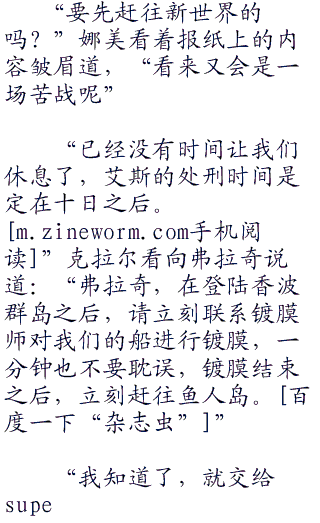 “要先赶往新世界的
吗？”娜美看着报纸上的内
容皱眉道，“看来又会是一
场苦战呢”
“已经没有时间让我们
休息了，艾斯的处刑时间是
定在十日之后。
[m.zineworm.com手机阅
读]”克拉尔看向弗拉奇说
道：“弗拉奇，在登陆香波
群岛之后，请立刻联系镀膜
师对我们的船进行镀膜，一
分钟也不要耽误，镀膜结束
之后，立刻赶往鱼人岛。[百
度一下“杂志虫”]”
“我知道了，就交给
supe